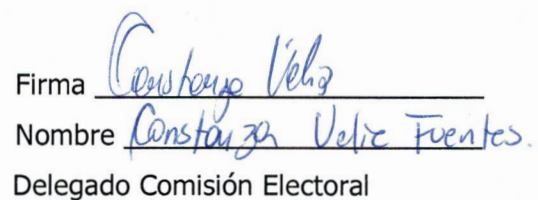 Firma Constanza Veliz
Nombre Constanza Veliz Fuentes.
Delegado Comisión Electoral